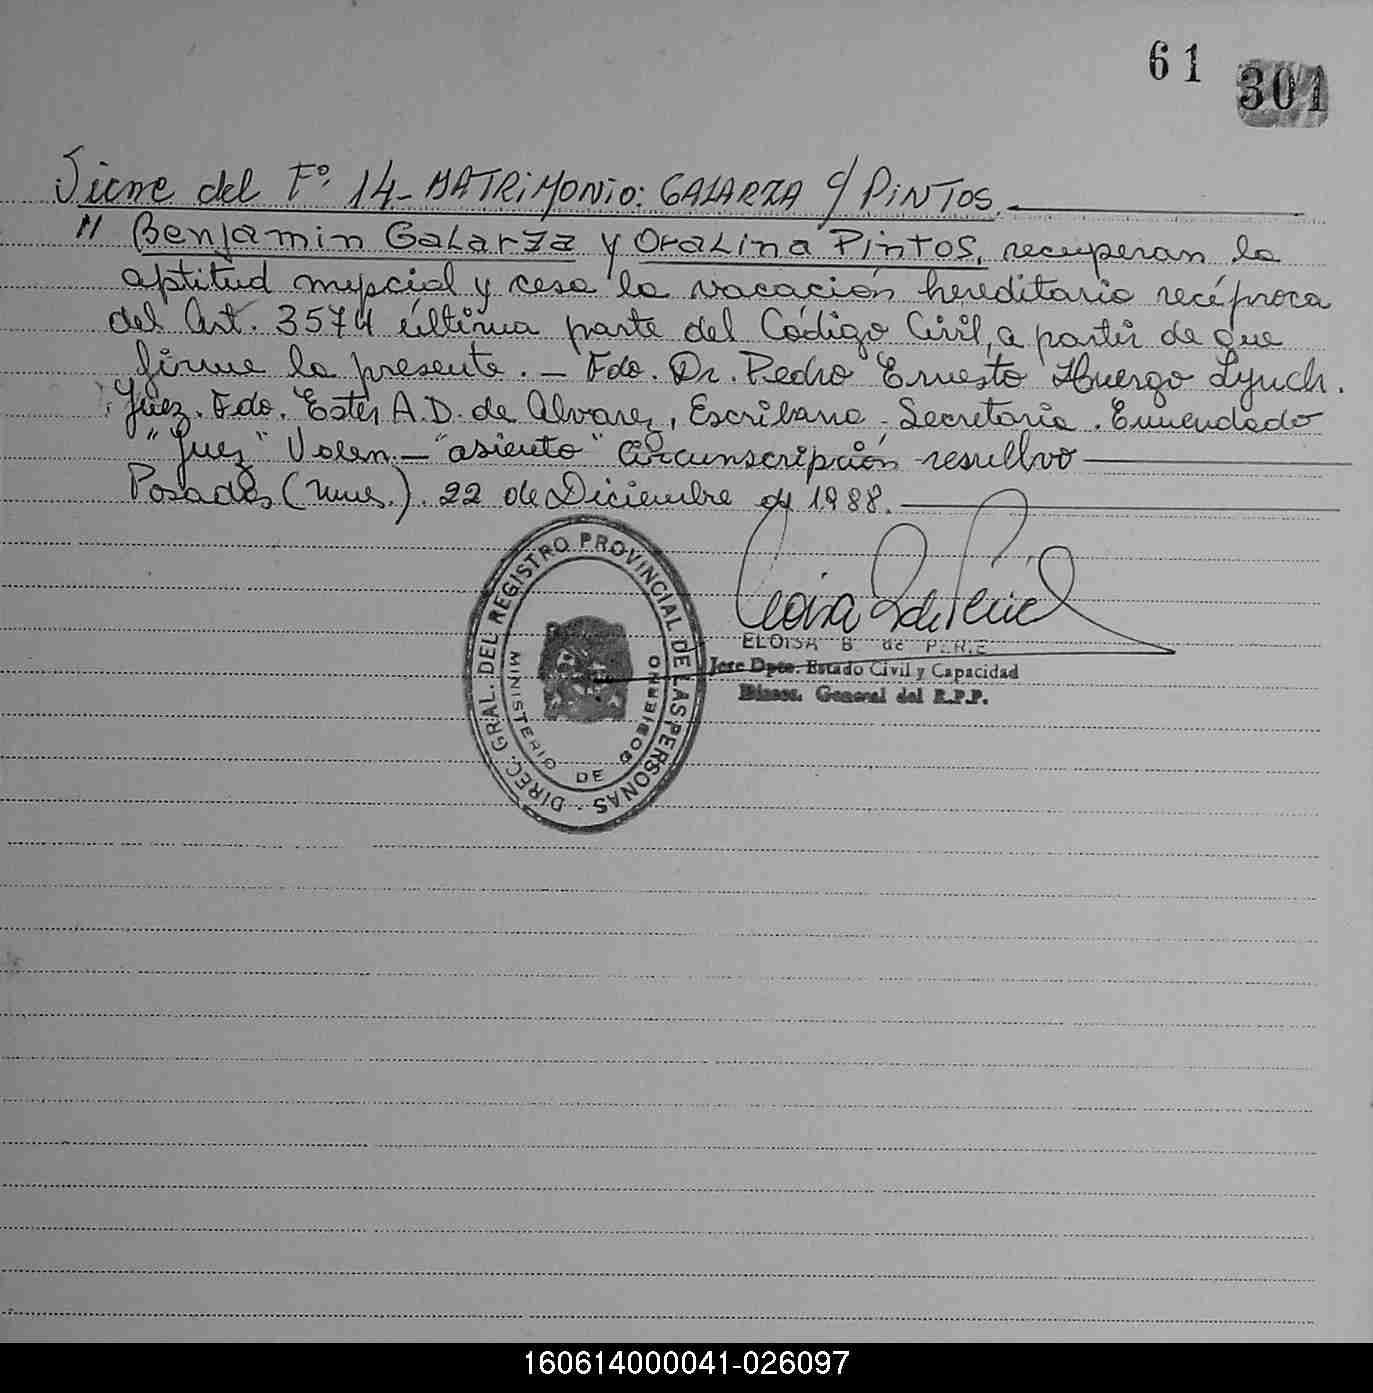 61 301
Viene del Fº. 14- MATRIMONIO: GALARZA C/ PINTOS.
" Benjamin Galarza y Oralina Pintos, recuperan la
aptitud nupcial y cesa la vocación hereditaria recíproca
del Art. 3574 última parte del Código Civil, a partir de que
firme la presente. - Fdo. Dr. Pedro Ernesto Huergo Lynch.
Juez. Fdo. Ester A.D. de Alvarez, Escribana - Secretaria. Enmendado
"Juez" Valen.- "asiento" Circunscripción resuelvo
Posadas (Mnes.). 22 de Diciembre de 1988.
DIREC. GRAL. DEL REGISTRO PROVINCIAL DE LAS PERSONAS
MINISTERIO DE GOBIERNO
ELOISA B. de PERIE
Jefe Dpto. Estado Civil y Capacidad
Direcc. General del R.P.P.
160614000041-026097